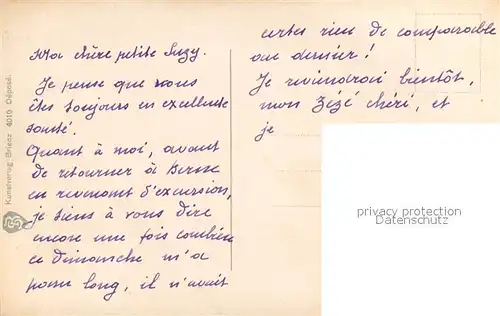 Ma chère petite Suzy.
Je pense que vous
êtes toujours en excellente
santé.
Quant à moi, avant
de retourner à Berne
en revenant d'excursion,
je tiens à vous dire
encore une fois combien
ce dimanche m'a
paru long, il n'avait
certes rien de comparable
au dernier!
Je reviendrai bientôt,
mon Zézé chéri, et
je
Kunstverlag Brienz 4010 Déposé.
privacy protection
www.oldthing.de